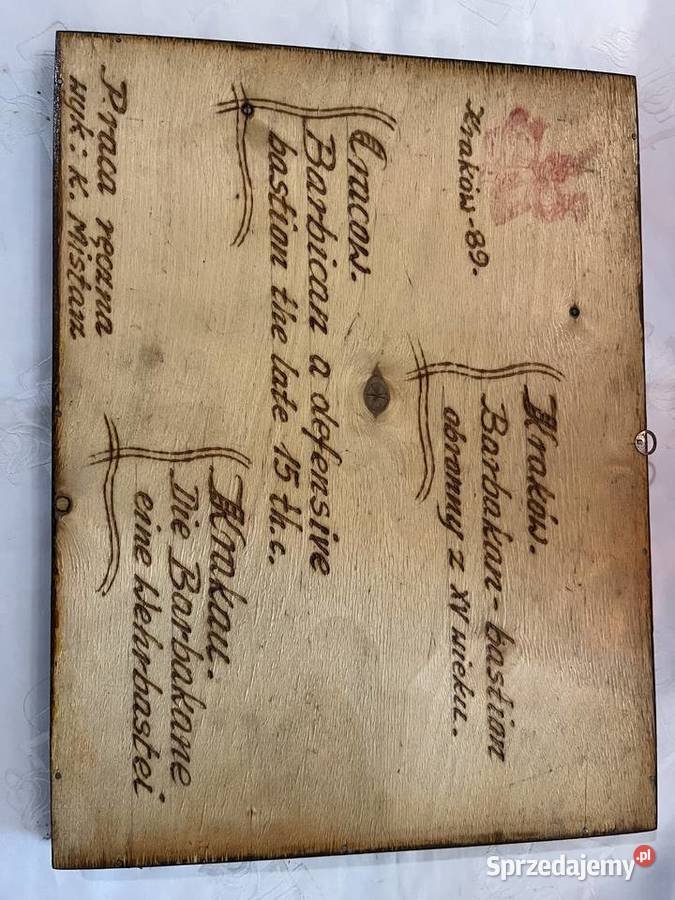 Kraków-89.
Kraków.
Barbakan - bastion
obronny z XV wieku.
Cracow.
Barbican a defensive
bastion the late 15 th.c.
Krakau.
Die Barbakane
eine Wehrbastei
Praca ręczna
wyk: K. Mistan
Sprzedajemy.pl